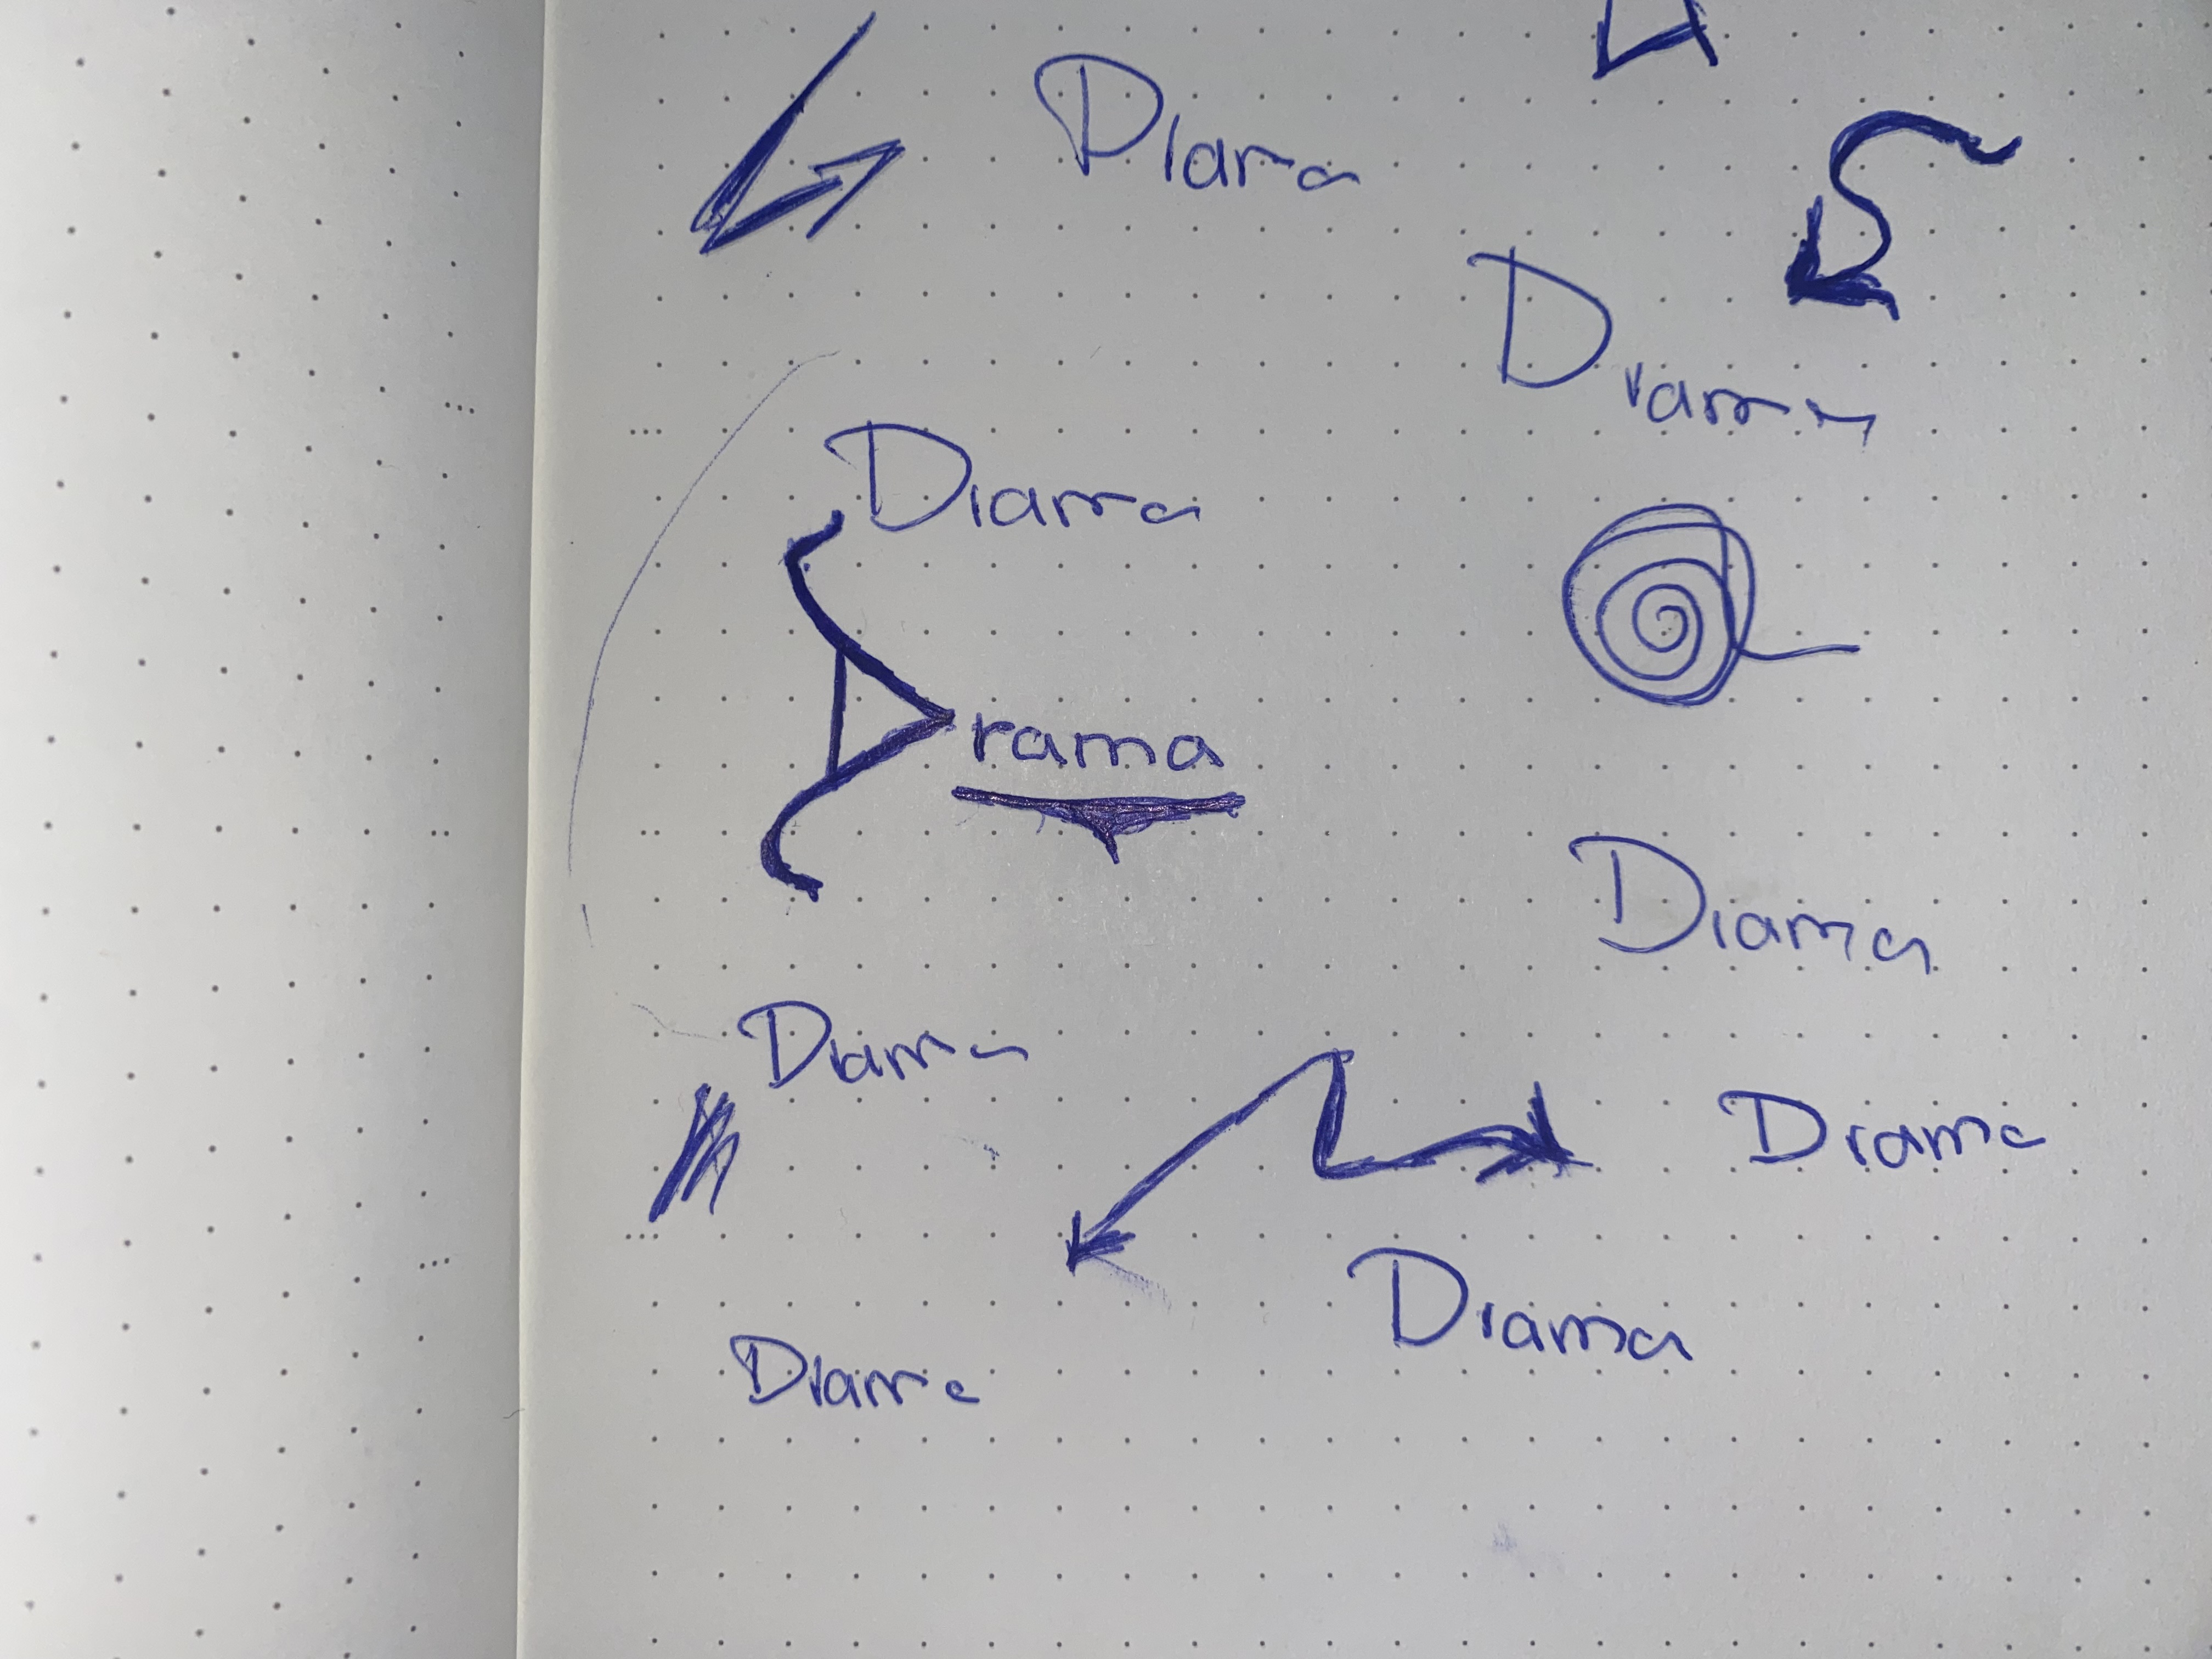 Drama
Drama
Drama
Drama
Drama
Drama
Drama
Drama
Drama